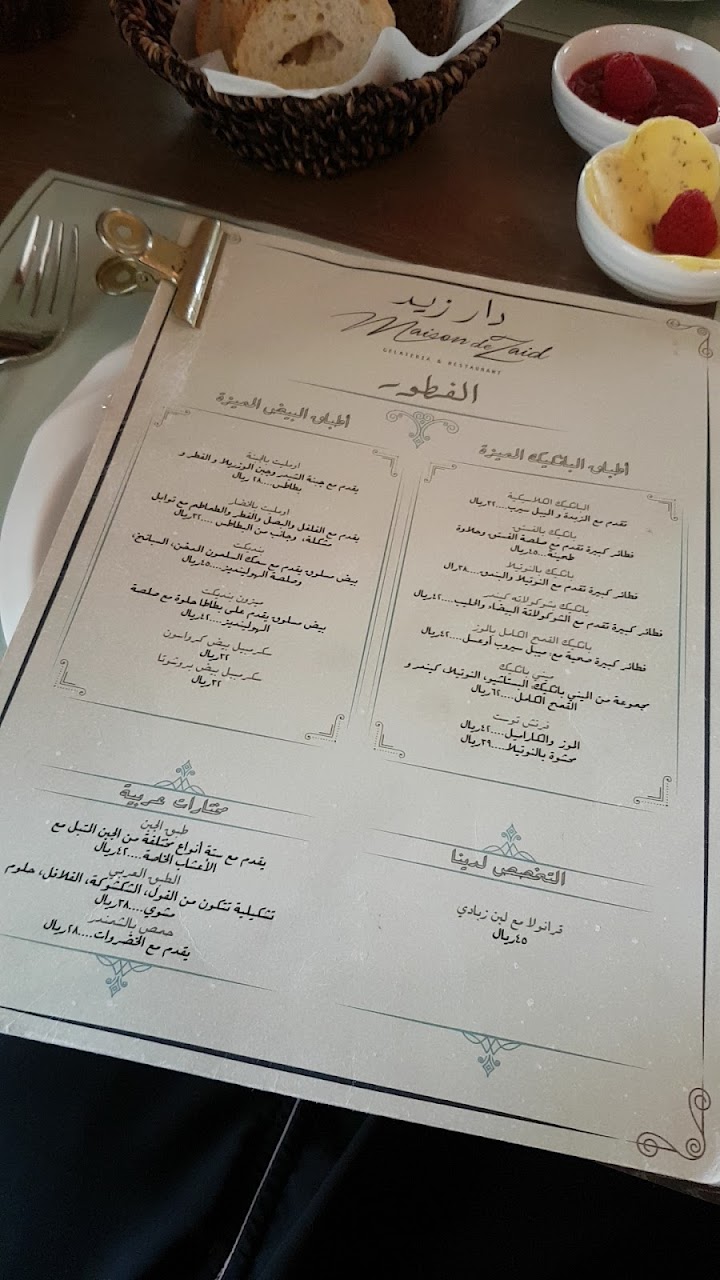 دار زيد
Maison de Zaid
GELATERIA & RESTAURANT
الفطور
أطباق البانكيك المميزة
البانكيك الكلاسيكية
تقدم مع الزبدة و الميبل سيرب....٣٢ريال
بانكيك بالفستق
فطائر كبيرة تقدم مع صلصة الفستق وحلاوة
طحينة...٤٥ريال
بانكيك بالنوتيلا
فطائر كبيرة تقدم مع النوتيلا والبندق...٣٨ريال
بانكيك بشوكولاته كيندر
فطائر كبيرة تقدم مع الشوكولاتة البيضاء والحليب...٤٢ريال
بانكيك القمح الكامل بالموز
فطائر كبيرة صحية مع، ميبل سيروب أوعسل...٤٢ريال
ميني بانكيك
مجموعة من الميني بانكيك البستاشيو، النوتيلا، كيندر و
القمح الكامل....٦٢ريال
فرنش توست
الموز والكاراميل...٤٢ريال
محشوة بالنوتيلا....٣٩ريال
أطباق البيض المميزة
اومليت بالجبنة
يقدم مع جبنة الشيدر وجبن الموزريلا و الفطر و
بطاطس....٢٨ ريال
اومليت بالخضار
يقدم مع الفلفل والبصل والفطر والطماطم مع توابل
مشكلة، وجانب من البطاطس ....٣٢ريال
بنديكت
بيض مسلوق يقدم مع سمك السلمون المدخن، السبانخ،
وصلصة الهولينديز....٤٥ريال
ميزون بنديكت
بيض مسلوق يقدم على بطاطا حلوة مع صلصة
الهولينديز...٤٢ريال
سكرمبيل بيض كرواسون
٣٢ريال
سكرمبيل بيض بروشوتا
٣٢ريال
مختارات عربية
طبق الجبن
يقدم مع ستة أنواع مختلفة من الجبن المتبل مع
الأعشاب الخاصة....٤٢ريال
الطبق العربي
تشكيلية تتكون من الفول، الشكشوكة، الفلافل، حلوم
مشوي....٣٨ريال
حمص بالشمندر
يقدم مع الخضروات....٢٨ريال
التخصص لدينا
قرانولا مع لبن زبادي
٤٥ريال